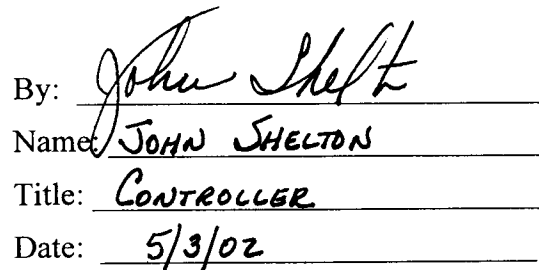 By: John Shelt
Name: JOHN SHELTON
Title: CONTROLLER
Date: 5/3/02